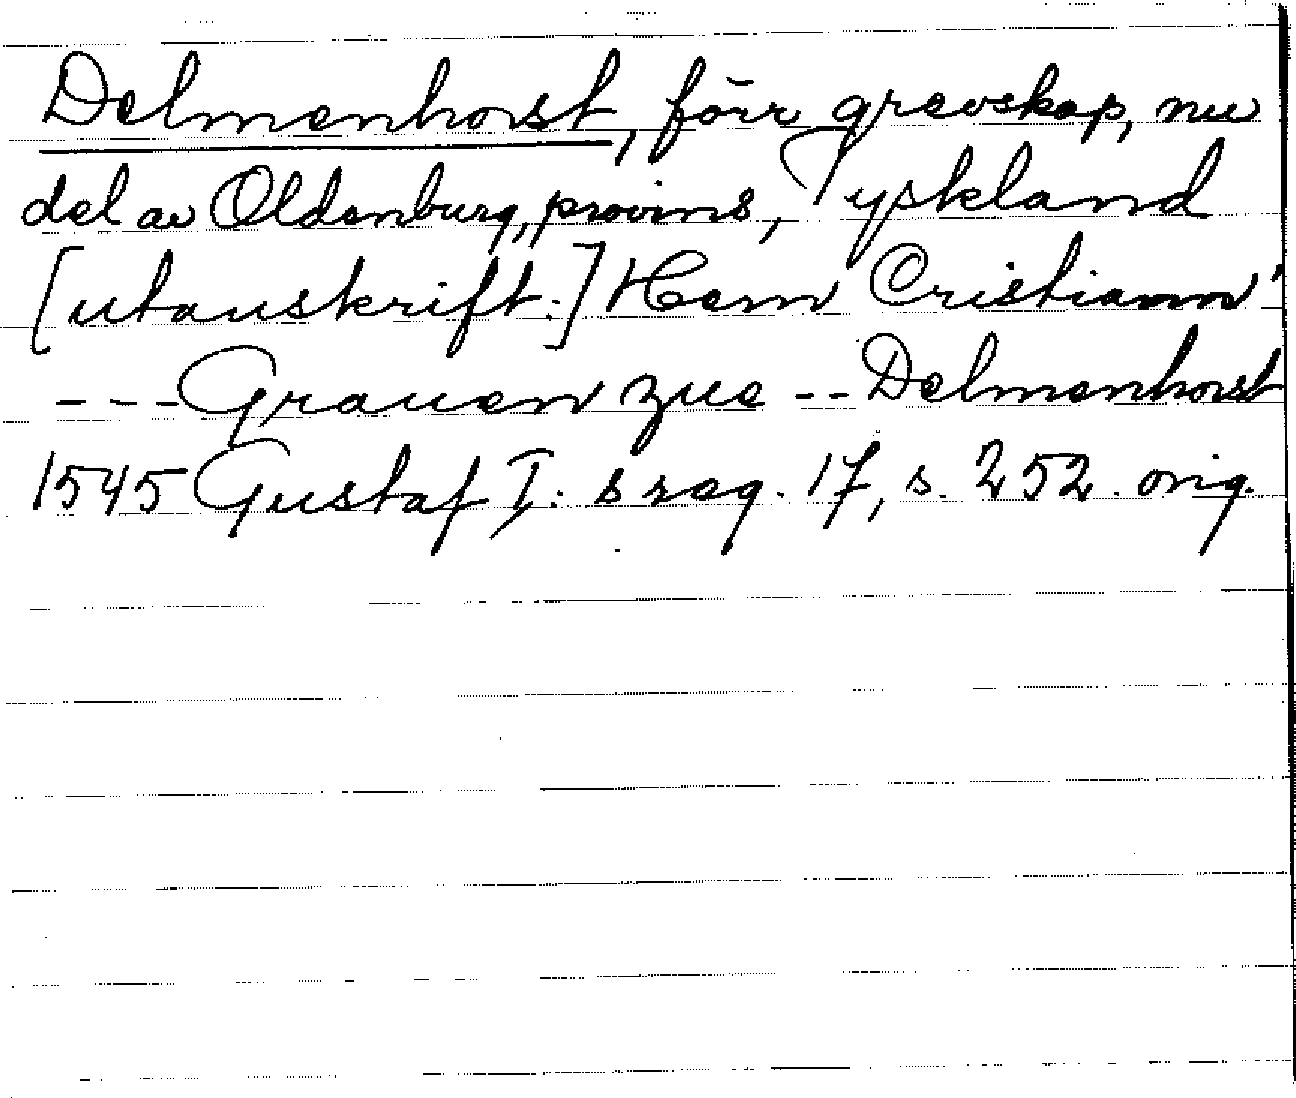 Delmenhorst, förr grevskap, nu
del av Oldenburg, provins, Tyskland
[utanskrift:] Hern Cristiann
--- Grauen zue -- Delmenhorst
1545 Gustaf I:s reg. 17, s. 252. orig.